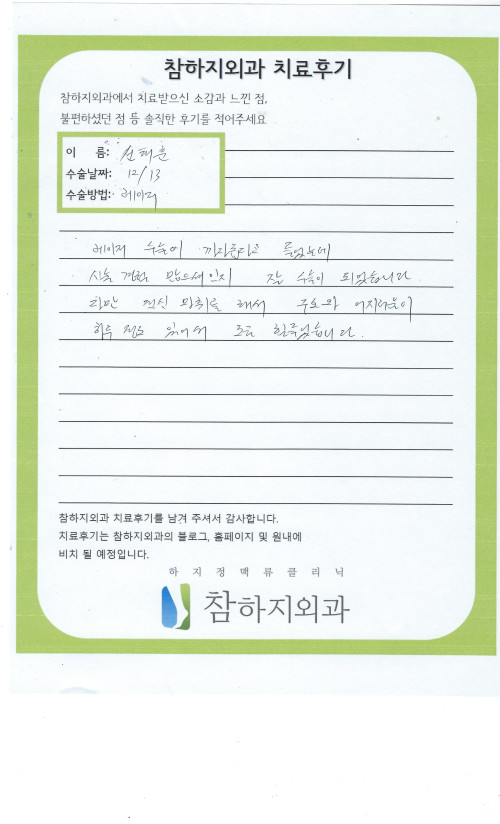 참하지외과 치료후기
참하지외과에서 치료받으신 소감과 느낀 점,
불편하셨던 점 등 솔직한 후기를 적어주세요
이 름:
수술날짜: 12/13
수술방법: 레이저
레이저 수술이 까다롭다고 들었는데
시술 경험 많으셔인지 잘 수술이 되었습니다
다만 전신 마취를 해서 구토와 어지러움이
하루 정도 있어서 조금 힘들었습니다.
참하지외과 치료후기를 남겨 주셔서 감사합니다.
치료후기는 참하지외과의 블로그, 홈페이지 및 원내에
비치 될 예정입니다.
하지정맥류클리닉
참하지외과